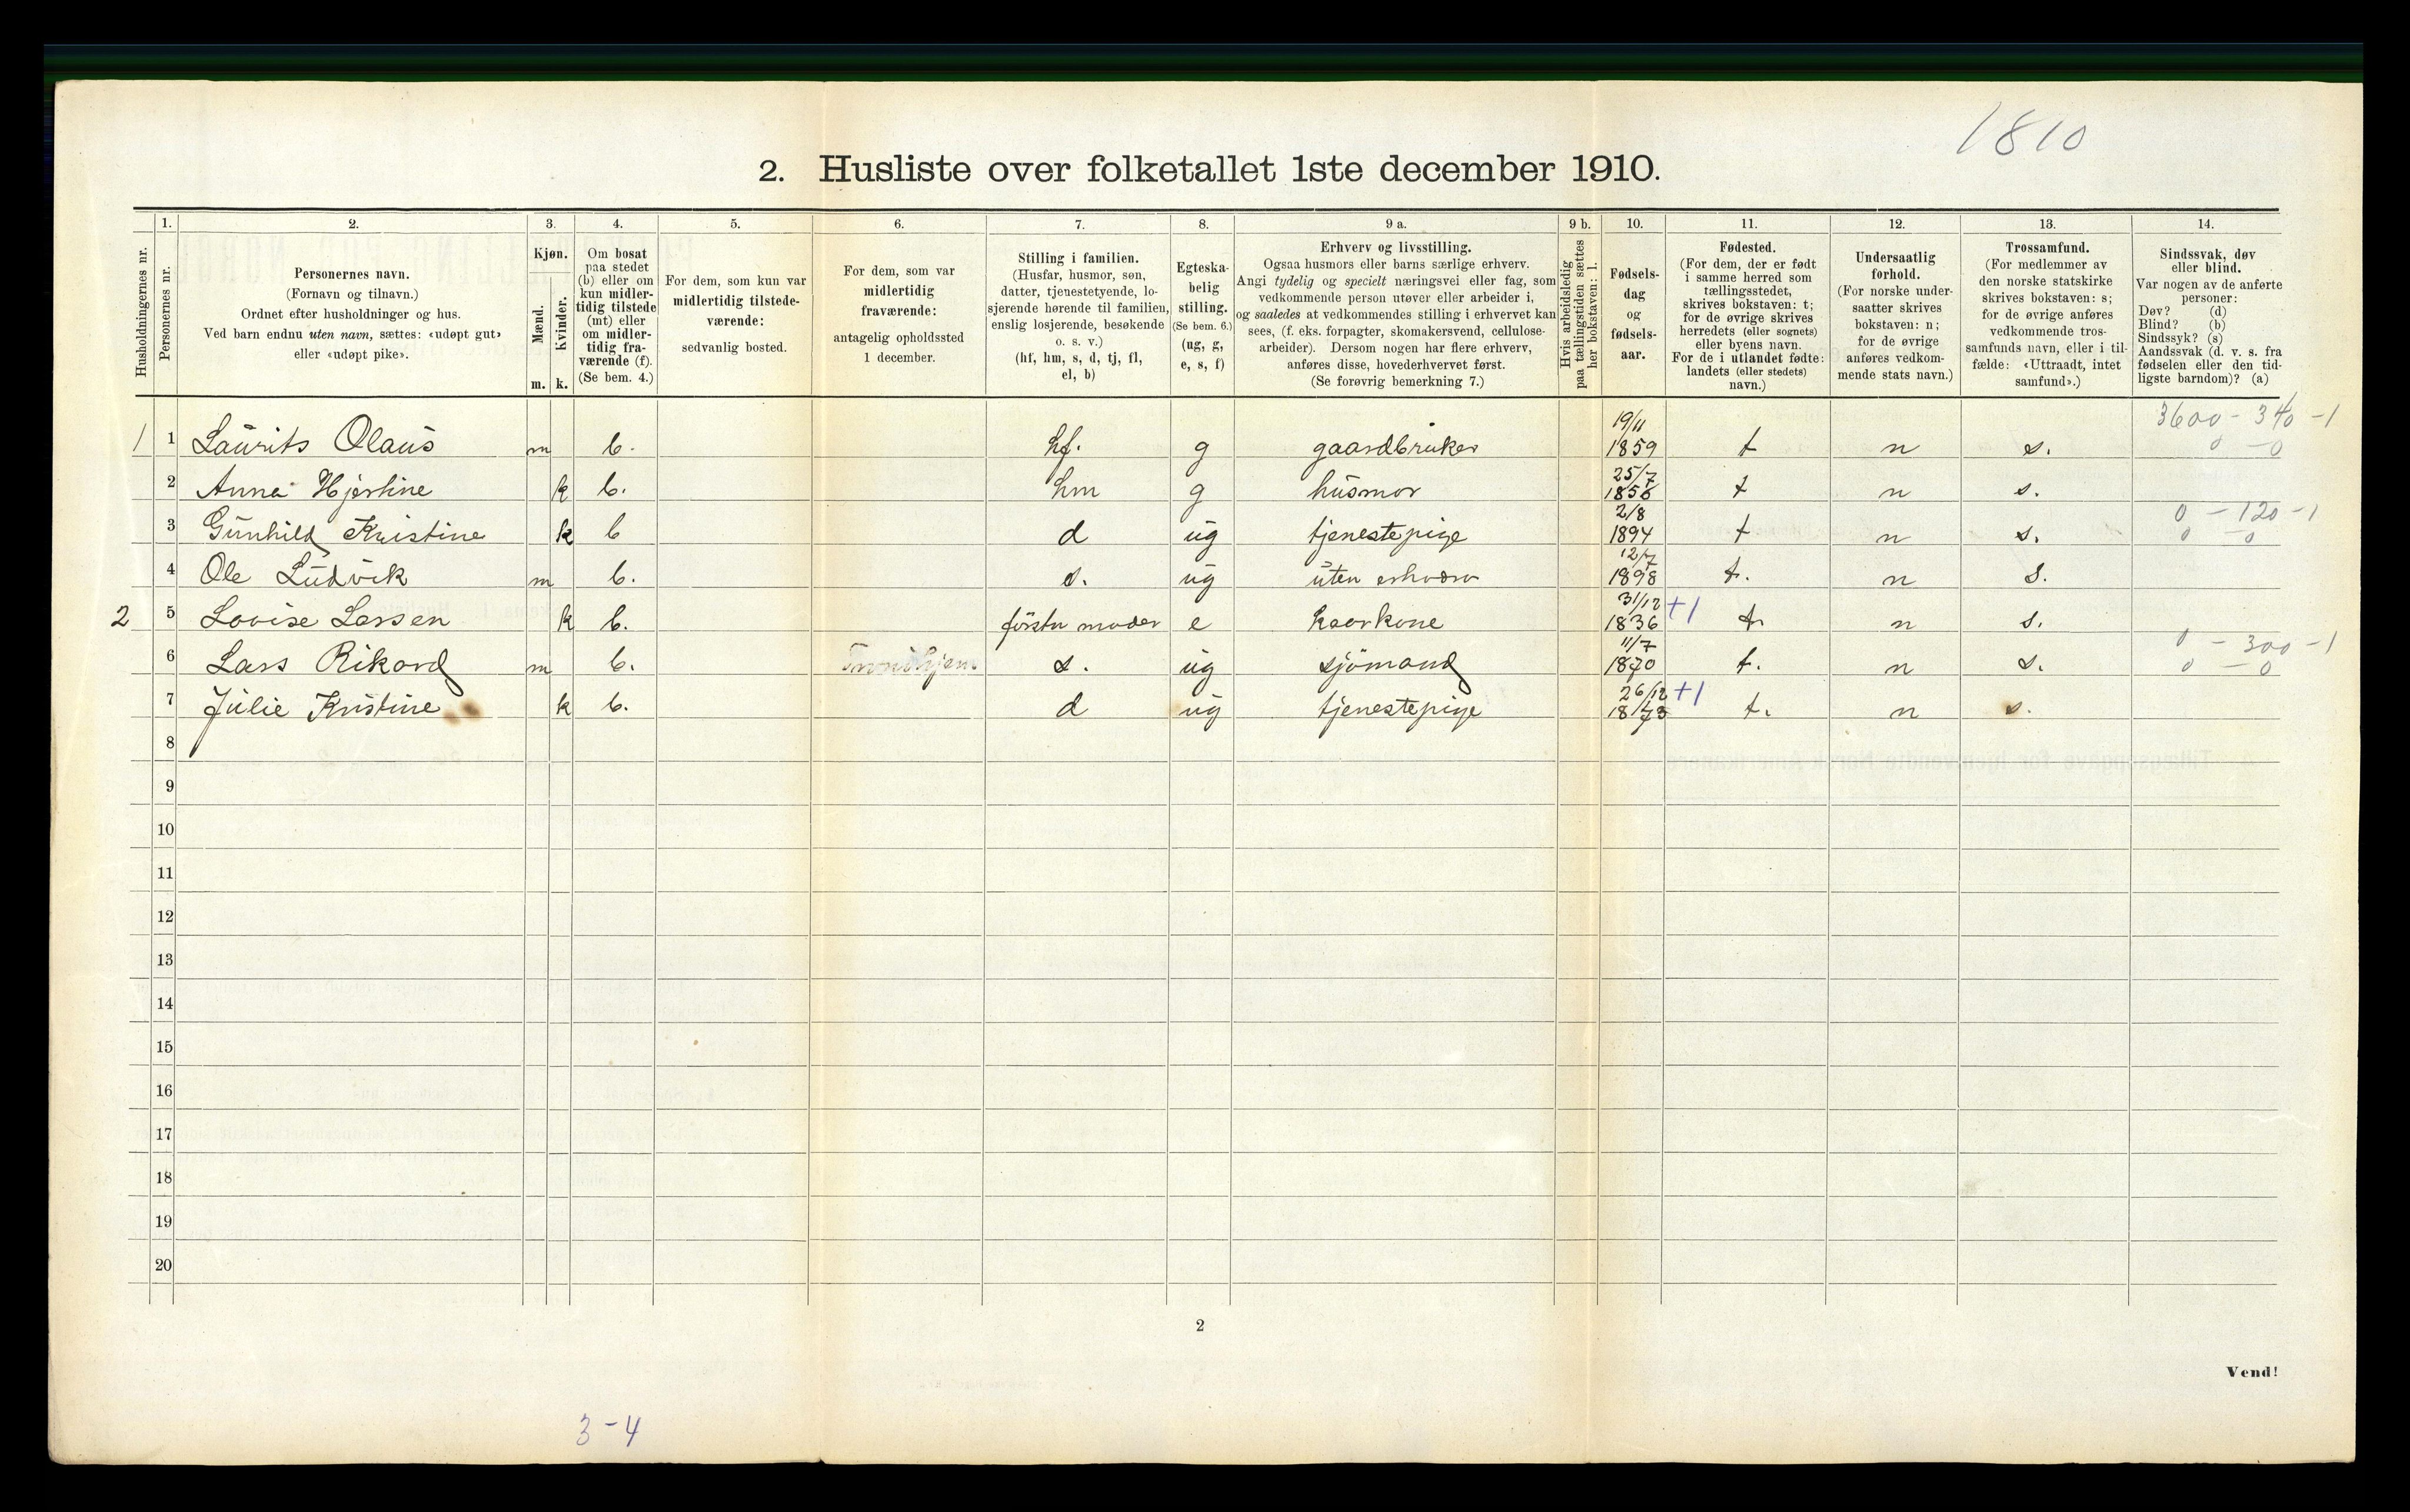 1810
2. Husliste over folketallet 1ste december 1910.
Husholdningernes nr.
1.
Personernes nr.
2.
Personernes navn.
(Fornavn og tilnavn.)
Ordnet efter husholdninger og hus.
Ved barn endnu uten navn, sættes: «udøpt gut»
eller «udøpt pike».
3.
Kjøn.
Mænd.
Kvinder.
m. k.
4.
Om bosat
paa stedet
(b) eller om
kun midler-
tidig tilstede
(mt) eller
om midler-
tidig fra-
værende (f).
(Se bem. 4.)
5.
For dem, som kun var
midlertidig tilstede-
værende:
sedvanlig bosted.
6.
For dem, som var
midlertidig
fraværende:
antagelig opholdssted
1 december.
7.
Stilling i familien.
(Husfar, husmor, søn,
datter, tjenestetyende, lo-
sjerende hørende til familien,
enslig losjerende, besøkende
o. s. v.)
(hf, hm, s, d, tj, fl,
el, b)
8.
Egteska-
belig
stilling.
(Se bem. 6.)
(ug, g,
e, s, f)
9 a.
Erhverv og livsstilling.
Ogsaa husmors eller barns særlige erhverv.
Angi tydelig og specielt næringsvei eller fag, som
vedkommende person utøver eller arbeider i,
og saaledes at vedkommendes stilling i erhvervet kan
sees, (f. eks. forpagter, skomakersvend, cellulose-
arbeider). Dersom nogen har flere erhverv,
anføres disse, hovederhvervet først.
(Se forøvrig bemerkning 7.)
9 b.
Hvis arbeidsledig
paa tællingstiden sættes
her bokstaven: l.
10.
Fødsels-
dag
og
fødsels-
aar.
11.
Fødested.
(For dem, der er født
i samme herred som
tællingsstedet,
skrives bokstaven: t;
for de øvrige skrives
herredets (eller sognets)
eller byens navn.
For de i utlandet fødte:
landets (eller stedets)
navn.)
12.
Undersaatlig
forhold.
(For norske under-
saatter skrives
bokstaven: n;
for de øvrige
anføres vedkom-
mende stats navn.)
13.
Trossamfund.
(For medlemmer av
den norske statskirke
skrives bokstaven: s;
for de øvrige anføres
vedkommende tros-
samfunds navn, eller i til-
fælde: «Uttraadt, intet
samfund».)
14.
Sindssvak, døv
eller blind.
Var nogen av de anførte
personer:
Døv? (d)
Blind? (b)
Sindssyk? (s)
Aandssvak (d. v. s. fra
fødselen eller den tid-
ligste barndom)? (a)
3600 - 340 - 1
0 - 0
1 1 Laurits Olaus m b. hf. g gaardbruker 19/11 1859 t n s.
2 Anna Hjertine k b. hm g husmor 25/7 1856 t n s.
0 - 120 - 1
0 - 0
3 Gunhild Kristine k b d ug tjenestepige 2/8 1894 t n s.
4 Ole Ludvik m b. s. ug uten erhverv 12/7 1898 t. n s.
2 5 Lovise Larsen k b. e kaarkone 31/12 1836 +1 t. n s.
0 - 300 - 1
0 - 0
6 Lars Rikard m b. Trondhjem s. ug sjömand 11/7 1870 t. n s.
7 Julie Kristine k b. d ug tjenestepige 26/12 +1 t. n s.
8
9
10
11
12
13
14
15
16
17
18
19
20
2
Vend!
3-4